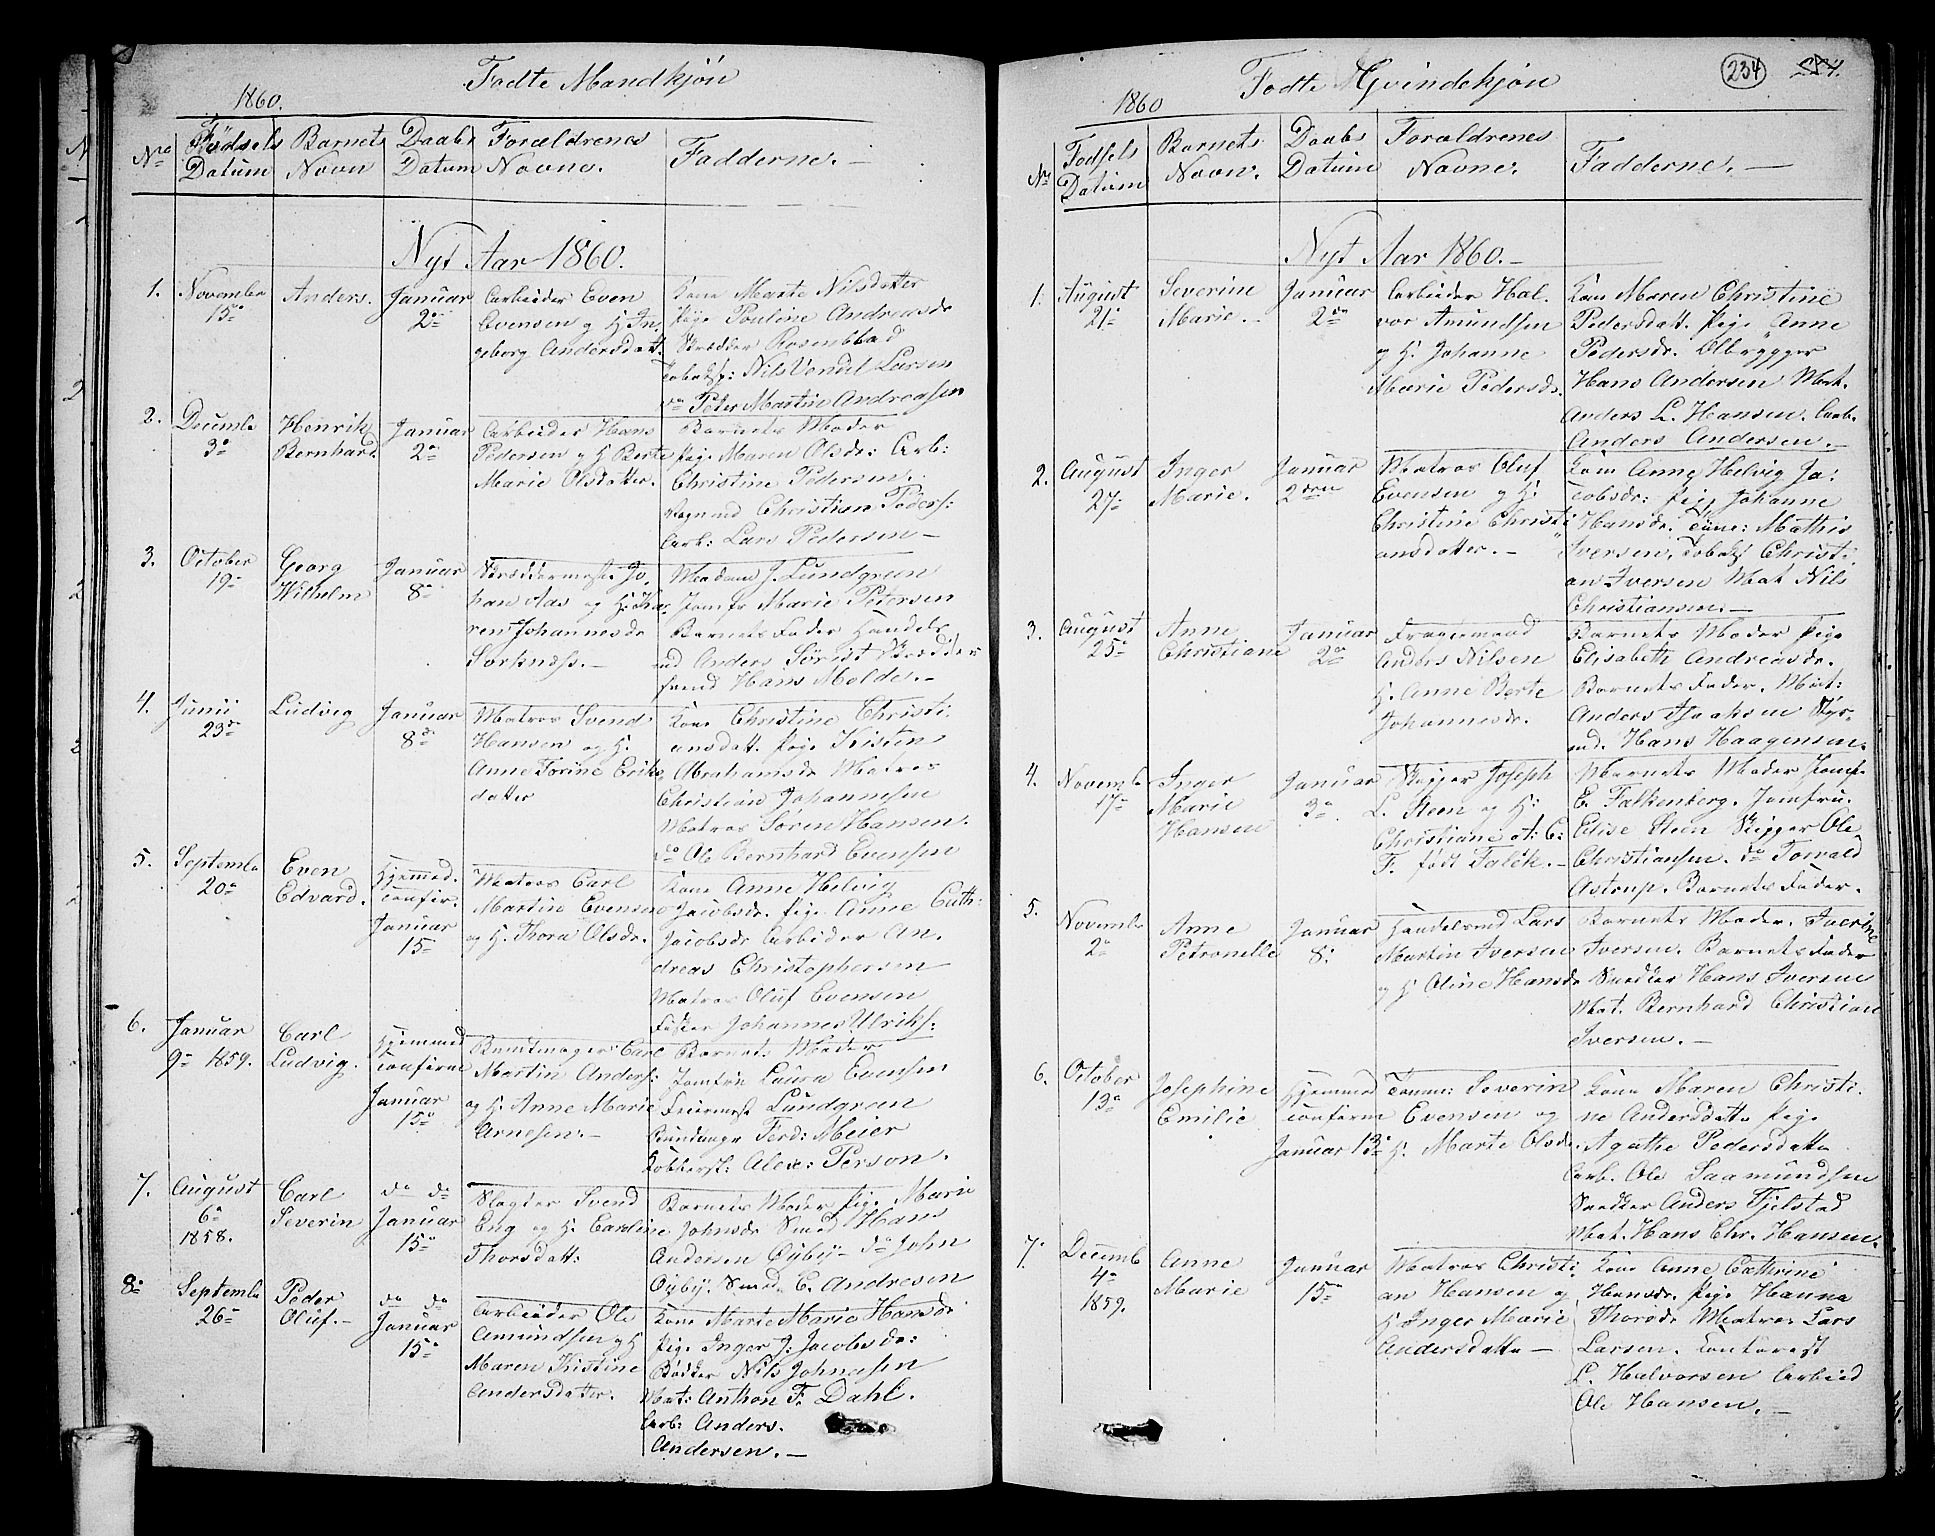 Fødte Mandkjøn
1860.
No
Fødsels Datum
Barnets Navn
Daabs Datum
Forældrenes Navne.
Fadderne. —
Nyt Aar 1860.
1.
November
15de
Anders.
Januar
2den
Arbeider Even
Evensen og H. In-
geborg Andersdatt.
Kone Marte Nilsdatter
Pige Pouline Andreasdr
Skrædder Rosenblad
Tobaksp: Nils Vendel Larsen
do Peter Martin Andreasen
2.
Decembr
3de
Henrik
Bernhard.
Januar
2den
Arbeider Hans
Pedersen og H. Berte
Marie Olsdatter.
Barnets Moder
Pige Maren Olsdr: Arb:
Christine Pedersen.
Christian Peders:
Arb: Lars Pedersen —
3.
October
19de
Georg
Wilhelm
Januar
8de
Skræddermestr Jo-
han Aas og H. Ka-
ren Johannesdr
Sorknæss. —
Madam J. Lundgreen
Jomfr Marie Petersen
Barnets Fader Handels
md Anders Skrædder
svend Hans Molde. —
4.
Junii
23de
Ludvig
Januar
8de
Matros Svend
Hansen og H.
Anne Torine Eriks
datter
Kone Christine Christi-
ansdatt. Pige Kisten
Abrahamsdr Matros
Christian Johannesen
Matros Søren Hansen.
do Ole Bernhard Evensen
5.
Septembr
20de
Even
Edvard.
Hjemmed.
confir.
Januar
15de
Matros Carl
Martin Evensen
og H. Thora Olsdr.
Kone Anne Helvig
Jacobsdr. Pige Anne Cath:
Jacobsdr Arbeider An-
dreas Christophersen
Matros Oluf Evensen
Fisker Johannes Ulriks:
6.
Januar
9de 1859.
Carl
Ludvig.
Hjemmed
confirme
Januar
15de
Buntmager Carl
Martin Anders:
og H. Anne Marie
Arnesen. —
Barnets Moder
Jomfru Laura Evensen
Lundgreen
Buntmagr Ferd: Meier
Kobberst: Alex: Person.
7.
August
6te
1858.
Carl
Severin
do do
Januar
15de
Slagter Svend
Eng og H. Caroline
Thorsdatt:
Barnets Moder Pige Marie
Johnsdr Smed Hans
Andersen Oxby — do John
Oxby. Smed. E. Andresen
8de
Septembr
26de
Peder
Oluf. —
do do
Januar
15de
Arbeider Ole
Amundsen og H
Maren Kistine
Andersdatter.
Kone Marte Marie Hansdr
Pige Inger J. Jacobsdr:
Bødker Nils Johnesen
Mat: Anthon F. Dahl.
Arb: Anders.
Andersen. —
Fødte Qvindekjøn
234
1860
No
Fødsels Datum
Barnets Navn.
Daabs Datum
Forældrenes Navne.
Fadderne. —
Nyt Aar 1860. —
1.
August
21de
Severine
Marie. —
Januar
2den
Arbeider Hal-
vor Amundsen
og H. Johanne
Marie Pedersdr.
Kone Maren Christine
Pedersdatt. Pige Anne
Pedersdr. Ølbrygger
Hans Andersen Mat.
Anders L. Hansen. Arb.
Anders Andersen. —
2.
August
27de
Inger
Marie.
Januar
2den
Matros Oluf
Evensen og H.
Christine Christi
ansdatter. —
Kone Anne Helvig Ja-
cobsdr: Pige Johanne
Hansdr. Tøm: Mathis
Iversen. Tobaksp Christi-
an Iversen Mat. Nils
Christiansen. —
3.
August
25de
Anne
Christiane
Januar
2den
Fragtemand
Anders Nilsen
H. Anne Berte
Johannesdr.
Barnets Moder Pige
Elisabeth Andreasdr.
Barnets Fader. Mat:
Anders Isaksen Styr-
md. Hans Haagensen.
4.
Novembr
17de
Inger
Marie
Hansen
Januar
3de
Skipper Joseph
L. Steen og H.
Christiane A: C:
F. født Falch. —
Barnets Moder Jomf.
E. Falkenberg. Jomfru.
Elise Steen Skipper Ole
Christiansen. do Torvald
Astrup. Barnets Fader.
5.
Novembr
2de
Anne
Petronelle
Januar
8:
Handelsmd Lars
Martin Iversen
og H Oline Hansdr
Barnets Moder. Iverine
Iversen. Barnets Fader
Snedker Hans Iversen
Mat. Bernhard Christian
Iversen. —
6.
October
13de
Josephine
Emilie
Hjemmed
confirme
Januar 13de
Tømm: Severin
Evensen og
H. Marte Olsdr.
Kone Maren Christi-
ne Andersdatte Pige
Agathe Pedersdatte
Arb. Ole Saamundsen
Snedker Anders Fjelstad
Mat. Hans Chr. Hansen.
7.
Decemb
4de
1859.
Anne
Marie
Januar
15de
Matros Christi-
an Hansen og
H. Inger Marie
Andersdatte —
Kone Anne Cathrine
Hansdr. Pige Hanna
Thorsdr Matros Lars
Larsen. Contorist
L. Halvorsen Arbeid
Ole Hansen. —